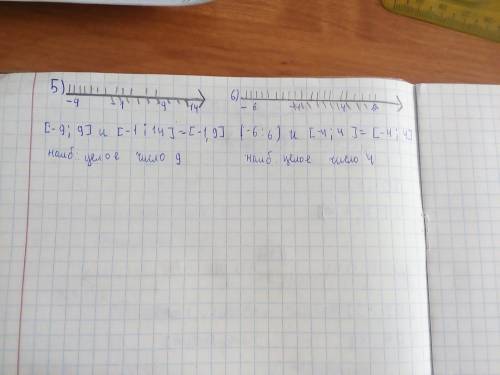 5)
-9 -1 9 14
[-9; 9] и [-1; 14] = [-1, 9]
наиб. целое число 9
6)
-6 -4 4 6
[-6; 6) и [-4; 4] = [-4; 4]
наиб целое число 4